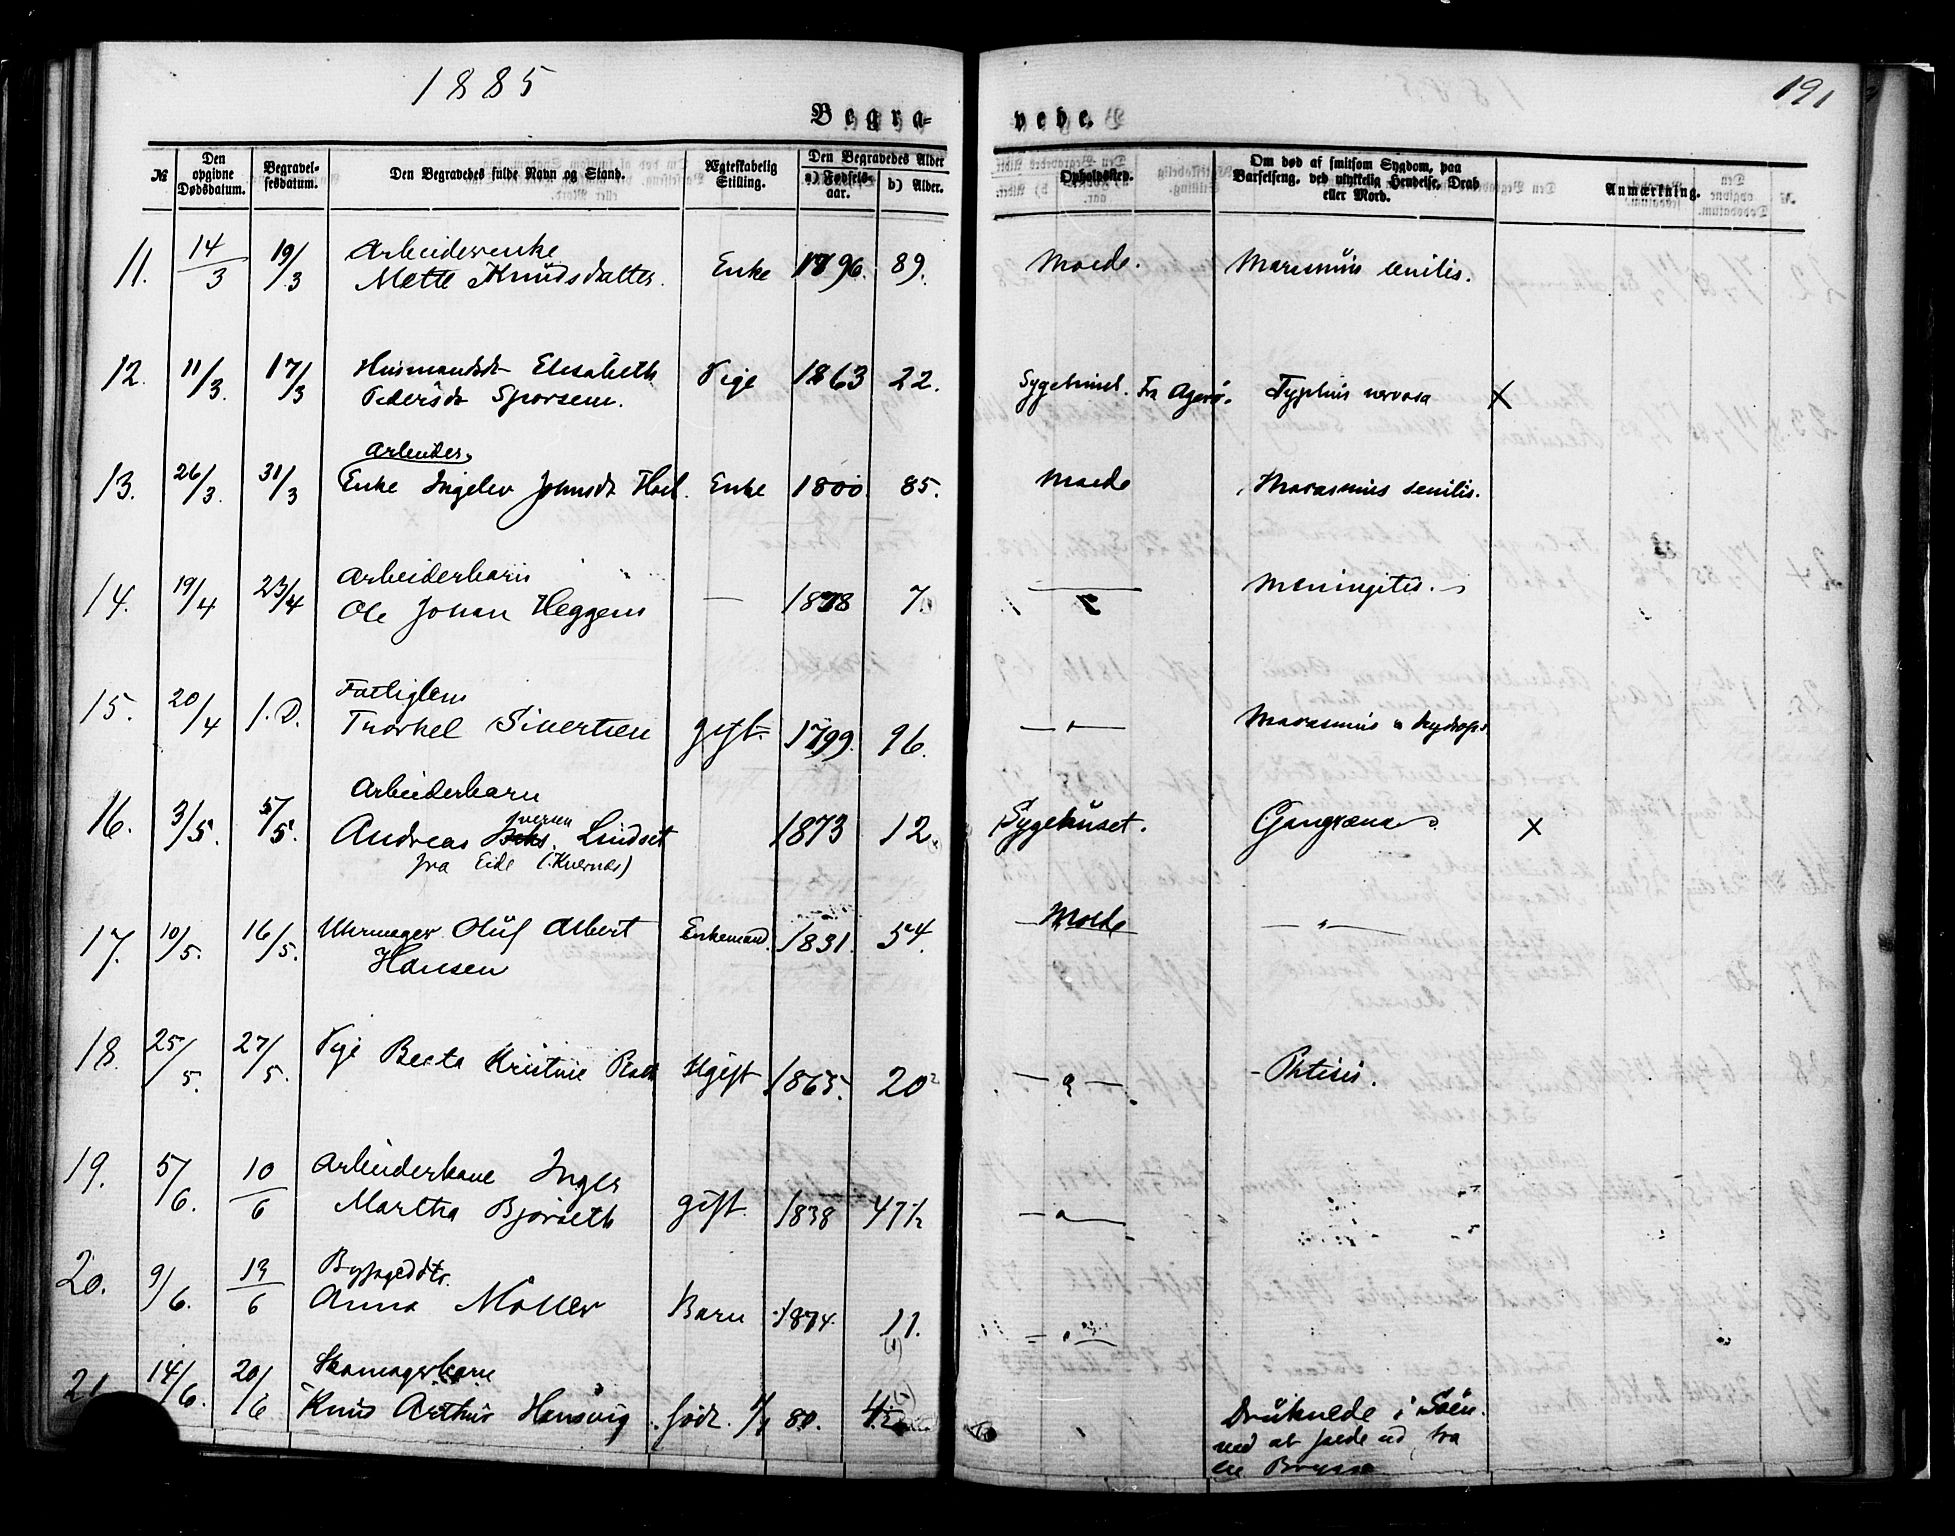 1885
191
Begra-
vede.
№
Den opgivne Dødsdatum.
Begravel-sesdatum.
Den Begravedes fulde Navn og Stand.
Ægteskabelig Stilling.
Den Begravedes Alder
a) Fødsels-aar.
b) Alder.
Opholdssted.
Om død af smitsom Sygdom, paa Barselseng, ved ulykkelig Hendelse, Drab eller Mord.
Anmærkning.
11. 14/3 19/3 Arbeiderenke
Mette Knudsdatter. Enke 1796. 89. Molde. Marasmus senilis.
12. 11/3. 17/3 Husmandsdt Elisabeth
Pedersdt Sporsem. Pige 1863 22. Sygehuset. Fra Agerø. Typhus nervosa X
Arbeider
13. 26/3. 31/3 Enke Ingelev Johnsdt Enke 1800 85. Molde Marasmus senilis.
14. 19/4 23/4 Arbeiderbarn
Ole Johan Heggem — 1878 7 — " — Meningitis.
15. 20/4 1. D. Fattiglem
Thorkel Sivertsen gift. 1799. 96. — " — Marasmus & hydrops.
16. 3/5. 5/5. Arbeiderbarn
Andreas Iversen Lindset
fra Eide (Kvernæs) 1873 12 Sygehuset. Gangræna X
17. 10/5. 16/5. Uhrmager Oluf Albert
Hansen Enkemand. 1831. 54. Molde — " —
18. 25/5. 27/5. Pige Berta Kristine Ugift 1865. 20 — " — Phtisis.
19. 5/6. 10/6 Arbeiderkone Inger
Martha Bjørseth gift. 1838 47 1/2 — " —
20. 9/6. 13/6 Byfogeddtr.
Anna Møller Barn 1874. 11. — " —
21 14/6. 20/6 Skomagerbarn
Knud Arthur Hansvig født 80. Druknede i Søen.
ved at falde ud fra
en Brygge